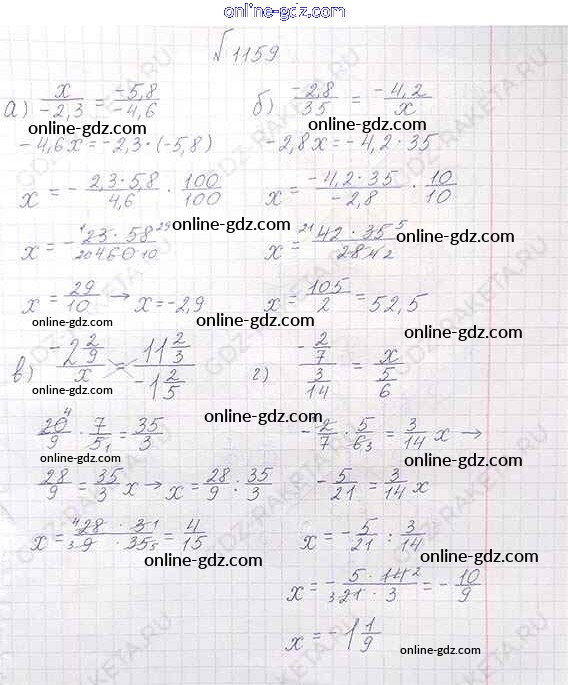 online-gdz.com
√1159
а) x/-2,3 = -5,8/-4,6
online-gdz.com
-4,6x = -2,3·(-5,8)
x = - 2,3·5,8/4,6 · 100/100
x = - 23·58 29/20 460 10
online-gdz.com
x = 29/10 → x = -2,9
online-gdz.com
б) -2,8/35 = -4,2/x
online-gdz.com
-2,8x = -4,2·35
x = -4,2·35/-2,8 · 10/10
x = 21 42·35 5/28 4 2
online-gdz.com
x = 105/2 = 52,5
online-gdz.com
online-gdz.com
в) -2 2/9/x = 11 2/3/-1 2/5
online-gdz.com
20 4/9 · 7/5 1 = 35/3
online-gdz.com
28/9 = 35/3 x → x = 28/9 : 35/3
online-gdz.com
x = 4 28·3 1/3 9·35 5 = 4/15
online-gdz.com
г) -2/7/3/14 = x/5/6
online-gdz.com
-2/7 · 5/6 3 = 3/14 x →
online-gdz.com
-5/21 = 3/14 x
online-gdz.com
x = -5/21 : 3/14
online-gdz.com
x = - 5·14 2/3 21·3 = - 10/9
online-gdz.com
x = -1 1/9
online-gdz.com
GDZ-RAKETA.RU